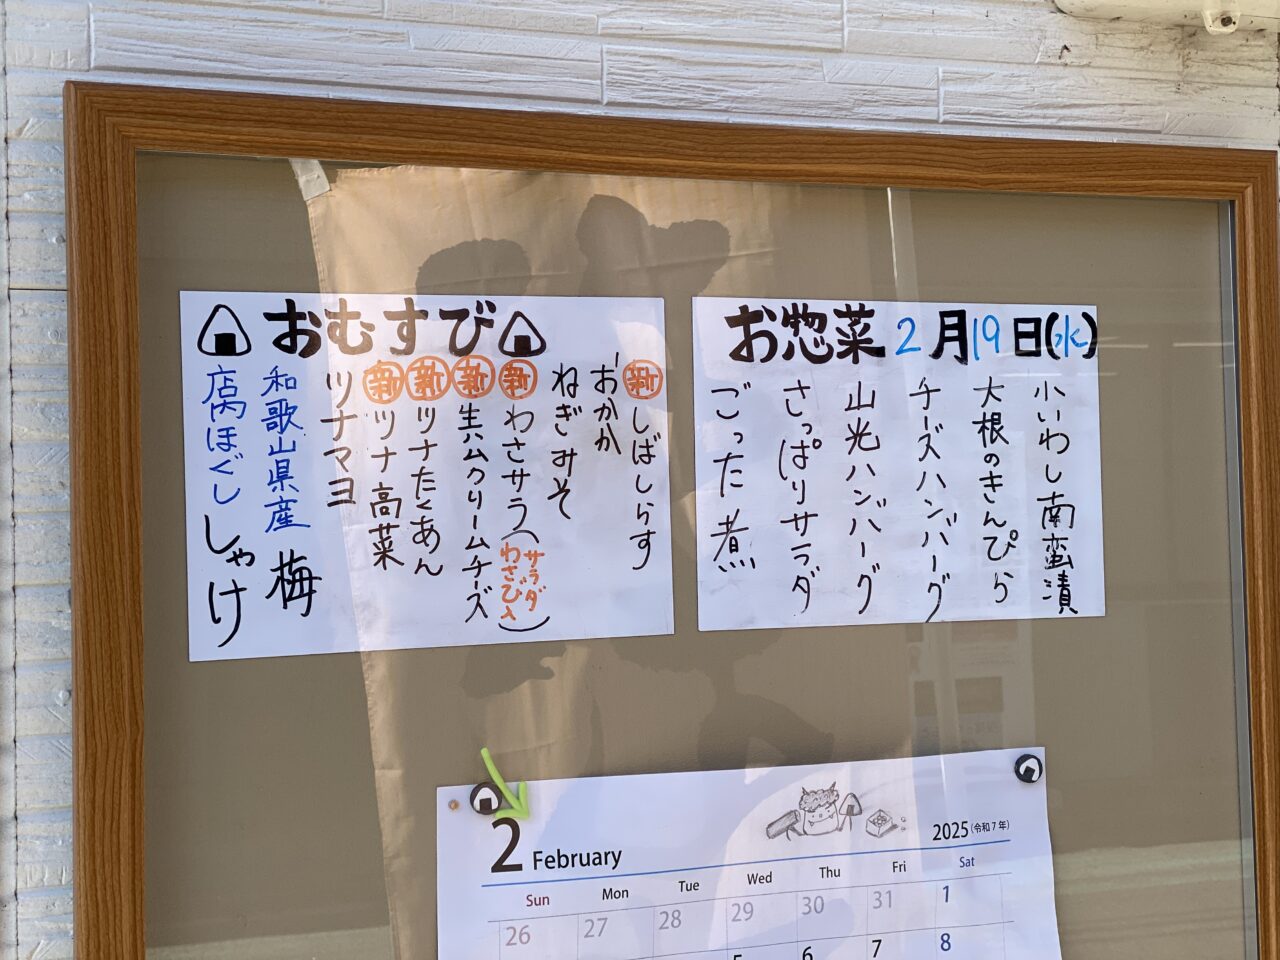 おむすび
新 しばしらす
おかか
ねぎみそ
新 わさサラ(サラダわさび入)
新 生ハムクリームチーズ
新 ツナたくあん
新 ツナ高菜
ツナマヨ
和歌山県産 梅
店内ほぐし しゃけ
お惣菜 2月19日(水)
小いわし南蛮漬
大根のきんぴら
チーズハンバーグ
山光ハンバーグ
さっぱりサラダ
ごった煮
2 February
2025(令和7年)
Sun Mon Tue Wed Thu Fri Sat
26 27 28 29 30 31 1
5 6 7 8